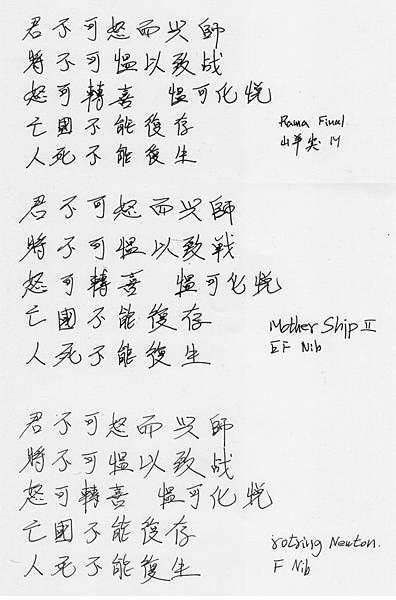 君不可怒而兴師
將不可愠以致战
怒可轉喜 愠可化悦
亡國不能復存
人死不能復生
Rama Final
山羊尖 M
君不可怒而兴師
將不可愠以致戦
怒可轉喜 愠可化悦
亡國不能復存
人死不能復生
Mother Ship II
EF Nib
君不可怒而兴師
將不可愠以致战
怒可轉喜 愠可化悦
亡國不能復存
人死不能復生
rotring Newton.
F Nib